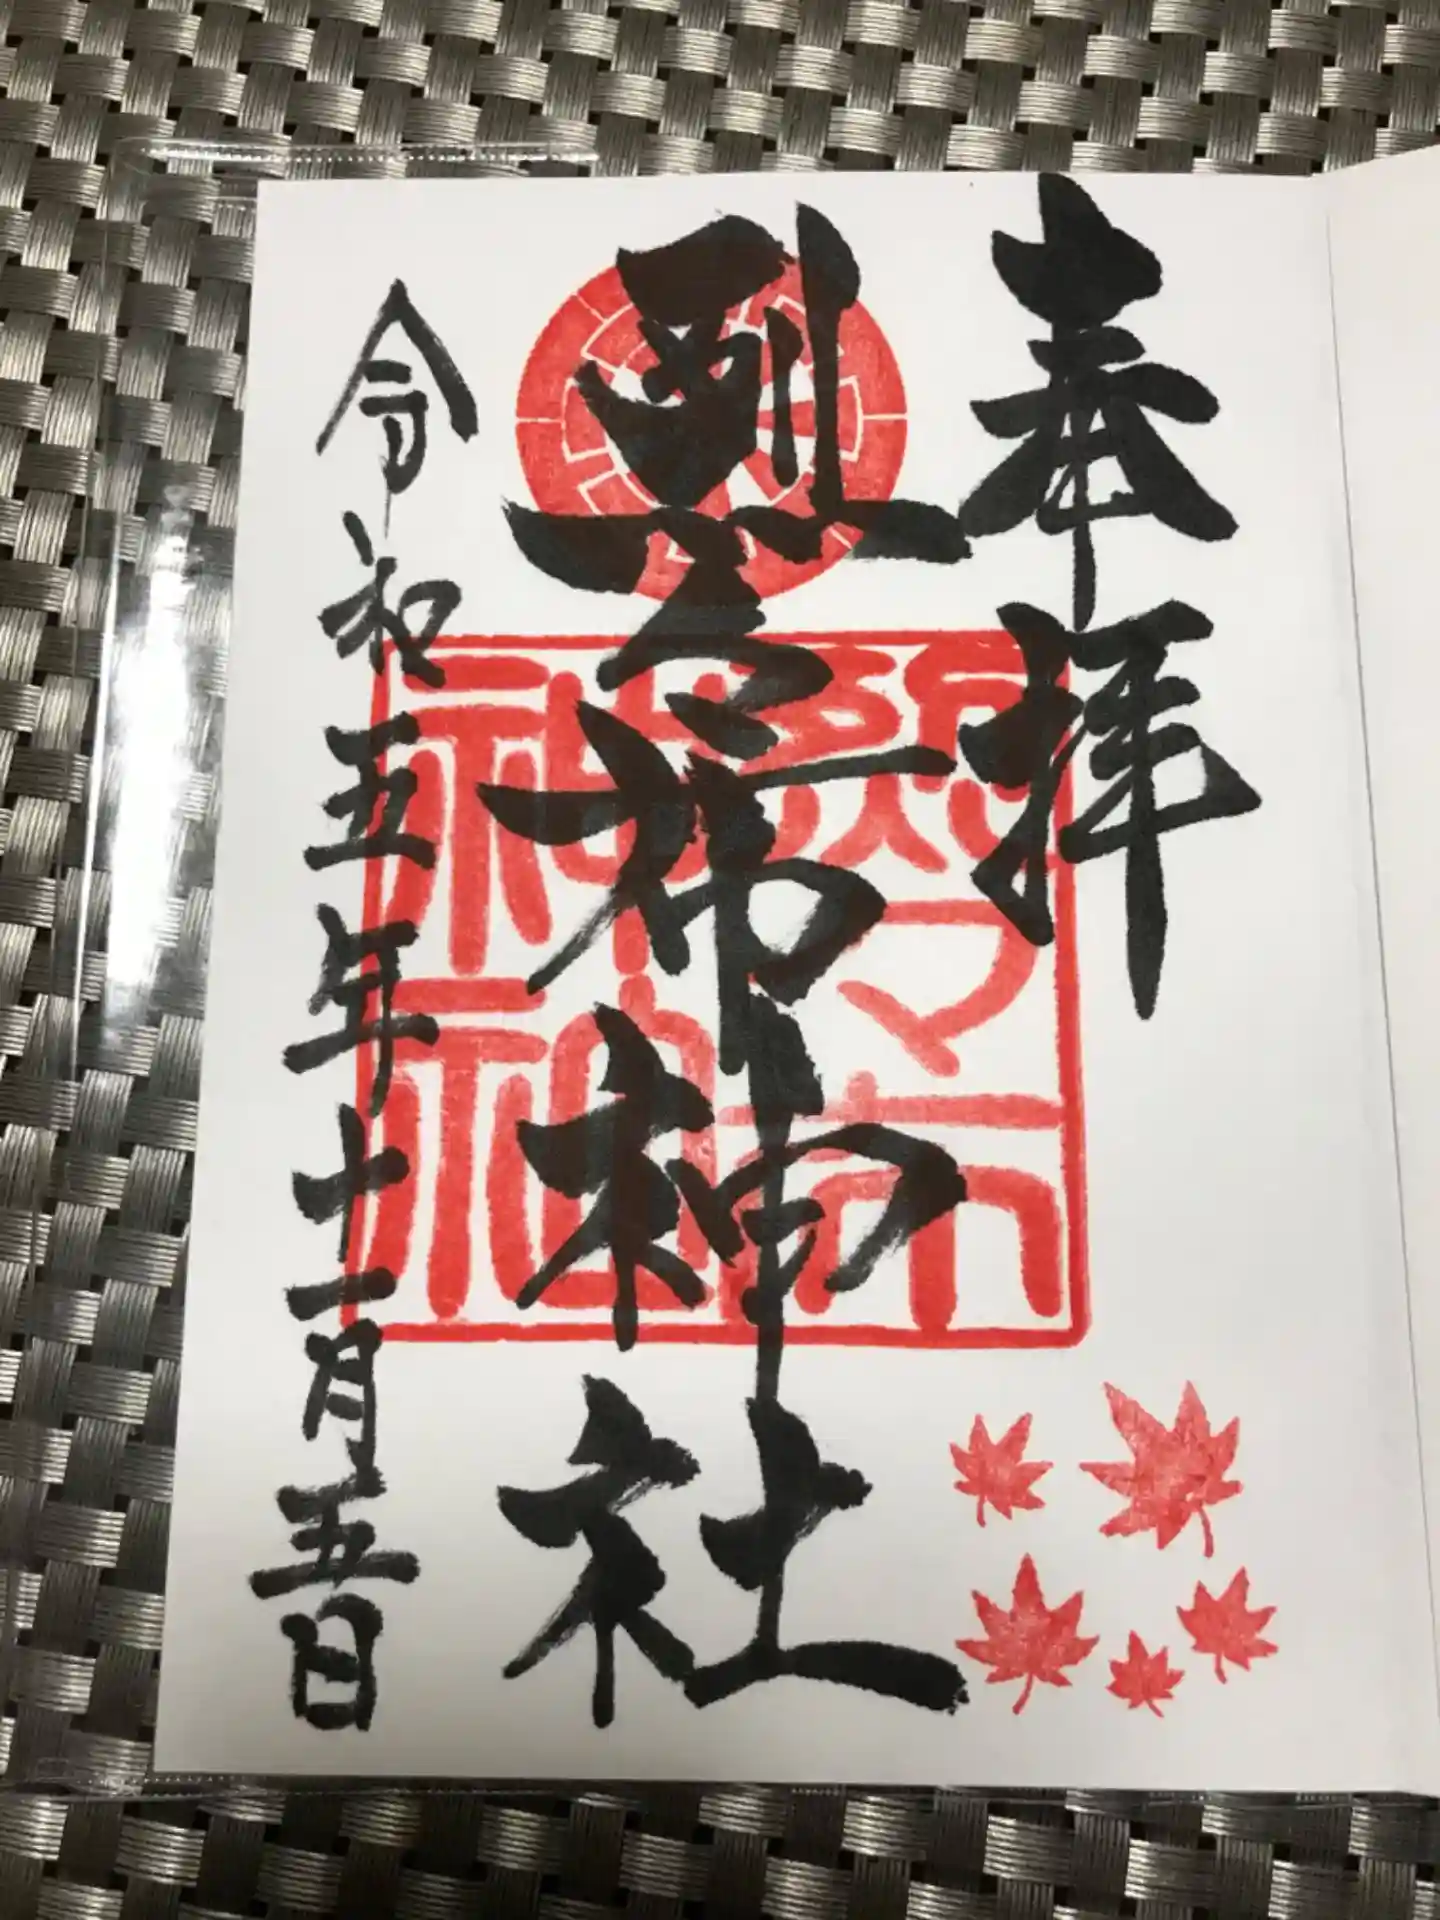 奉拝
烈々布神社
令和五年十一月五日
烈々布
神社